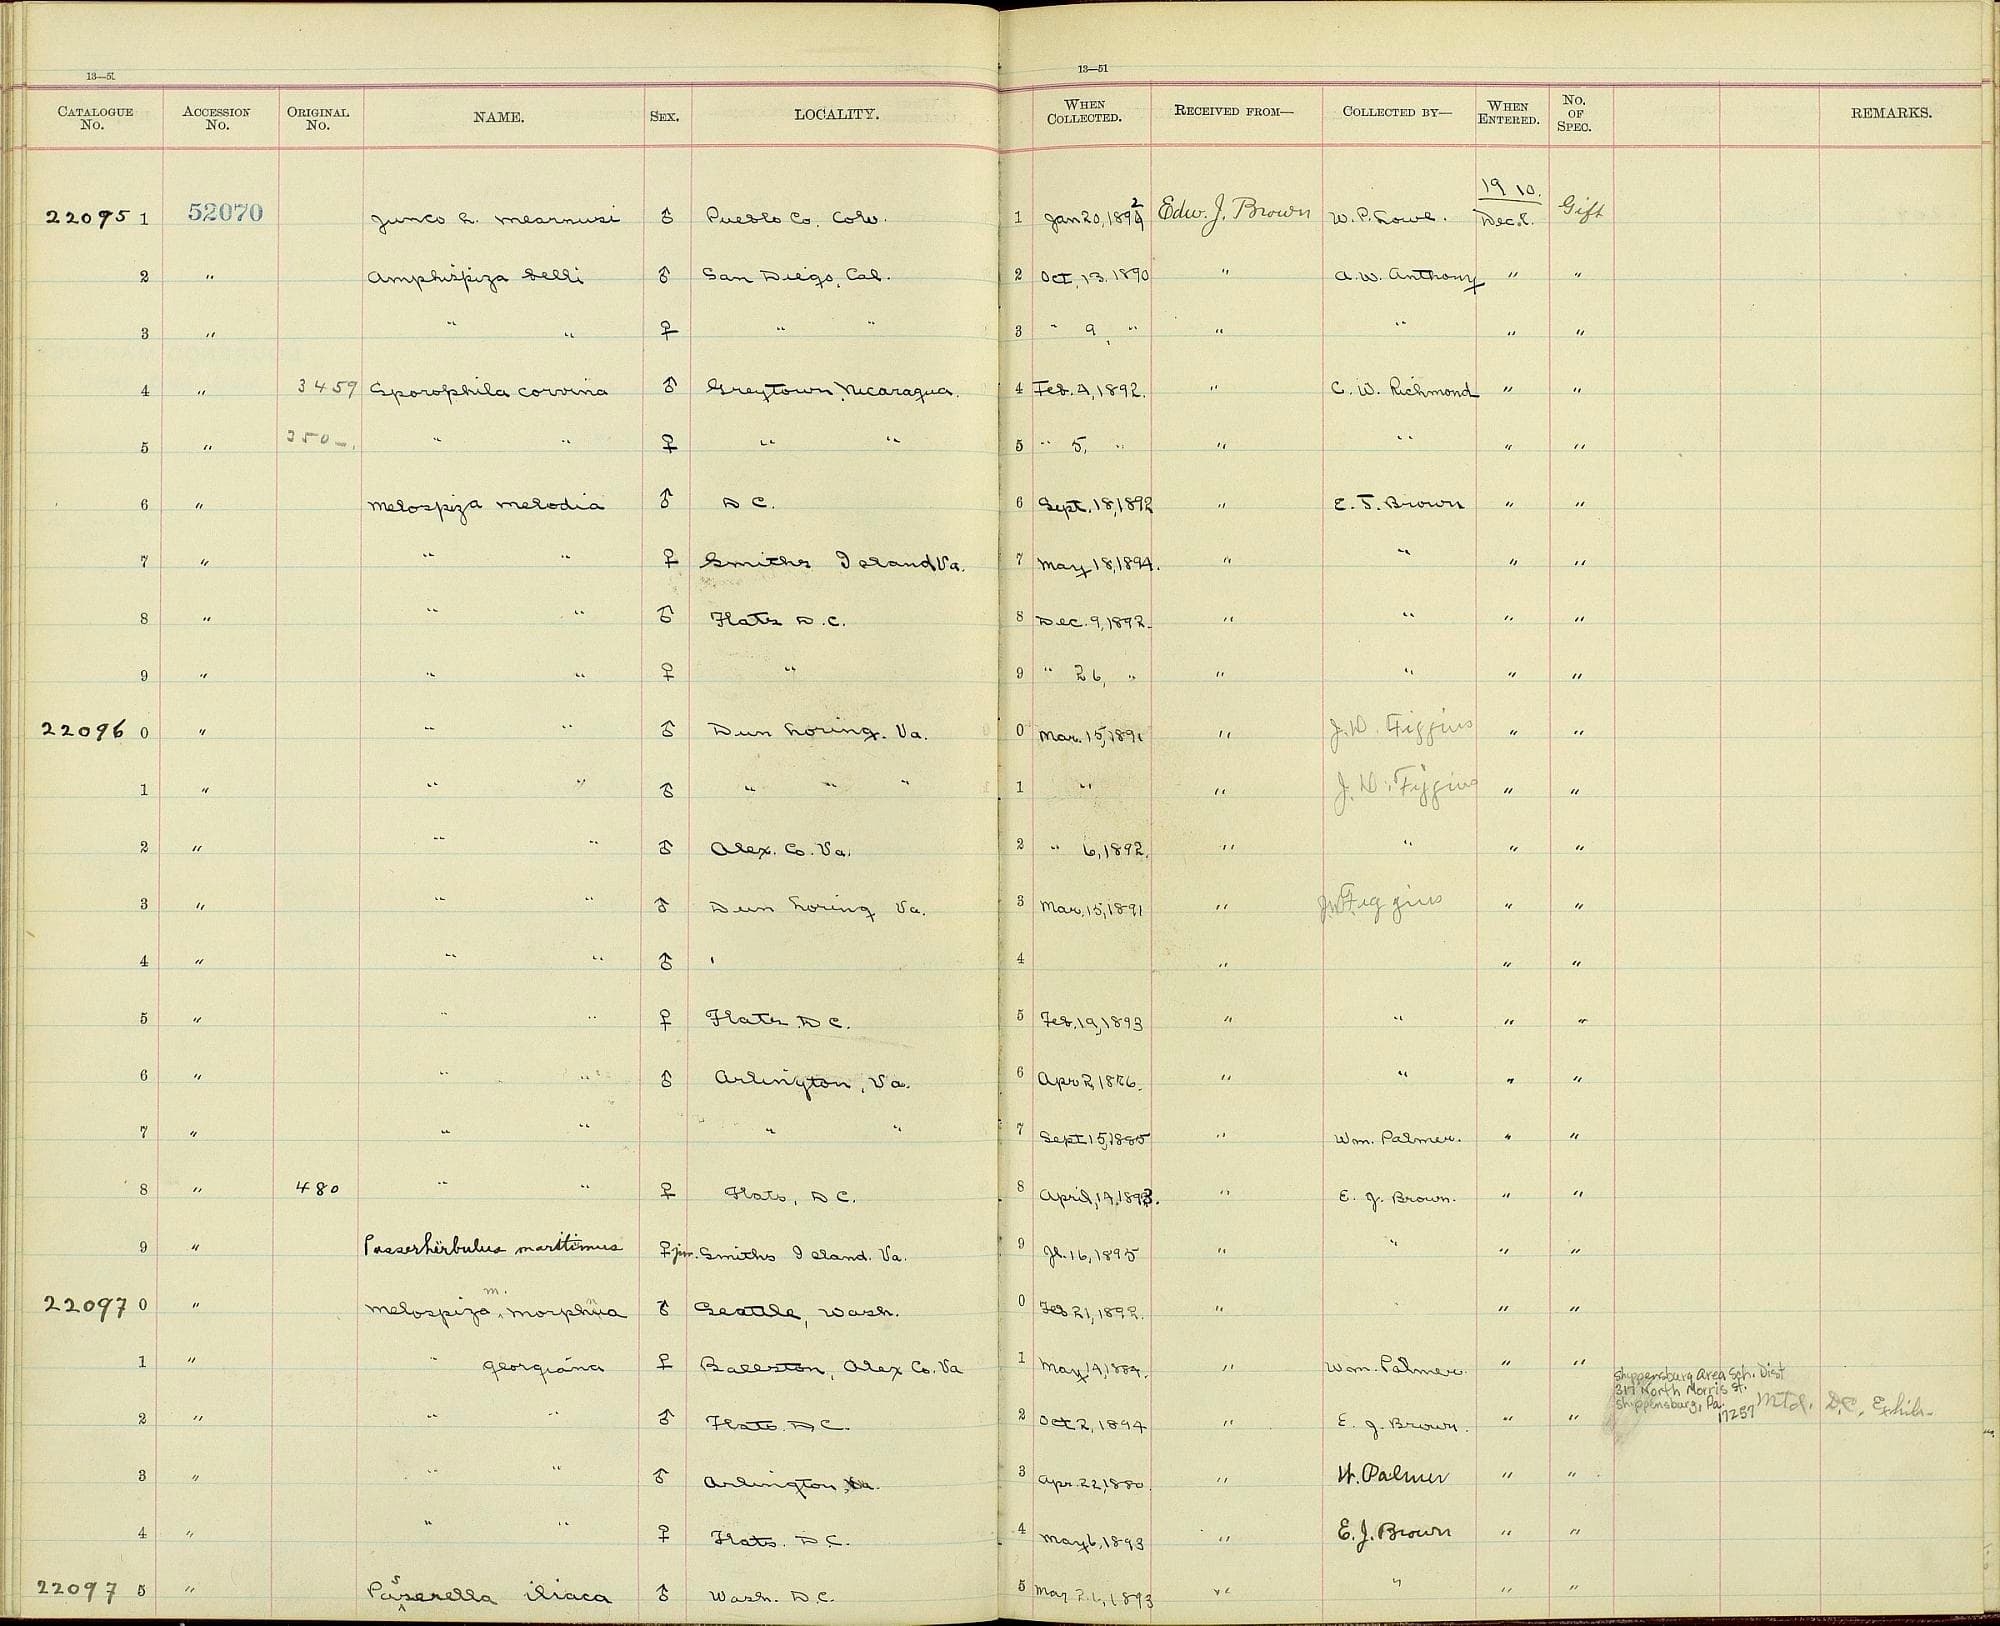 13—51
13—51
CATALOGUE No. ACCESSION No. ORIGINAL No. NAME. SEX. LOCALITY. WHEN COLLECTED. RECEIVED FROM— COLLECTED BY— WHEN ENTERED. No. OF SPEC. REMARKS.
22095 1 52070 Junco h. mearnsi ♂ Pueblo Co. Colo. 1 Jan 20, 1892 Edw. J. Brown W. P. Lowe. 1910. Dec. 8. Gift
2 " Amphispiza belli ♂ San Diego, Cal. 2 Oct. 13, 1890 " A. W. Anthony " "
3 " " " ♀ " " 3 " 9, " " " " "
4 " 3459 Sporophila corvina ♂ Greytown, Nicaragua. 4 Feb. 4, 1892. " C. W. Richmond " "
5 " 350–. " " ♀ " " 5 " 5, " " " " "
6 " Melospiza melodia ♂ D C. 6 Sept. 18, 1892 " E. J. Brown " "
7 " " " ♀ Smiths Island Va. 7 May 18, 1894. " " " "
8 " " " ♂ Flats D. C. 8 Dec. 9, 1892. " " " "
9 " " " ♀ " 9 " 26, " " " " "
22096 0 " " " ♂ Dun Loring. Va. 0 Mar. 15, 1891 " J. D. Figgins " "
1 " " " ♂ " " " 1 " " J. D. Figgins " "
2 " " " ♂ Alex. Co. Va. 2 " 6, 1892. " " " "
3 " " " ♂ Dun Loring Va. 3 Mar. 15, 1891 " J. D. Figgins " "
4 " " " ♂ ' 4 " " "
5 " " " ♀ Flats D C. 5 Feb. 19, 1893 " " " "
6 " " " ♂ Arlington, Va. 6 Apr 2, 1886. " " " "
7 " " " " " 7 Sept 15, 1885 " Wm. Palmer. " "
8 " 480 " " ♀ Flats, D C. 8 April, 14, 1893. " E. J. Brown. " "
9 " Passerherbulus maritimus ♀ juv. Smiths Island. Va. 9 Jl. 16, 1895 " " " "
22097 0 " Melospiza m. morphna ♂ Seattle, Wash. 0 Feb 21, 1892. " " "
1 " " georgiana ♀ Ballston, Alex Co. Va 1 May 14, 1884. " Wm. Palmer. " "
Shippensburg Area Sch. Dist
317 North Morris St.
Shippensburg, Pa.
17257
2 " " " ♂ Flats. D C. 2 Oct 2, 1894 " E. J. Brown. " " Mtd. D.C. Exhib.
3 " " " ♂ Arlington, Va. 3 Apr. 22, 1880. " W. Palmer " "
4 " " " ♀ Flats. D. C. 4 May 6, 1893 " E. J. Brown " "
22097 5 " Passerella iliaca ♂ Wash. D. C. 5 Mar 1893 " " " "